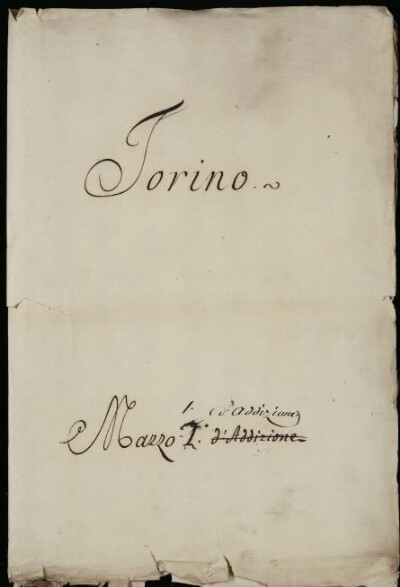 Torino. ~
1. d'addizione
Mazzo I. d'Addizione